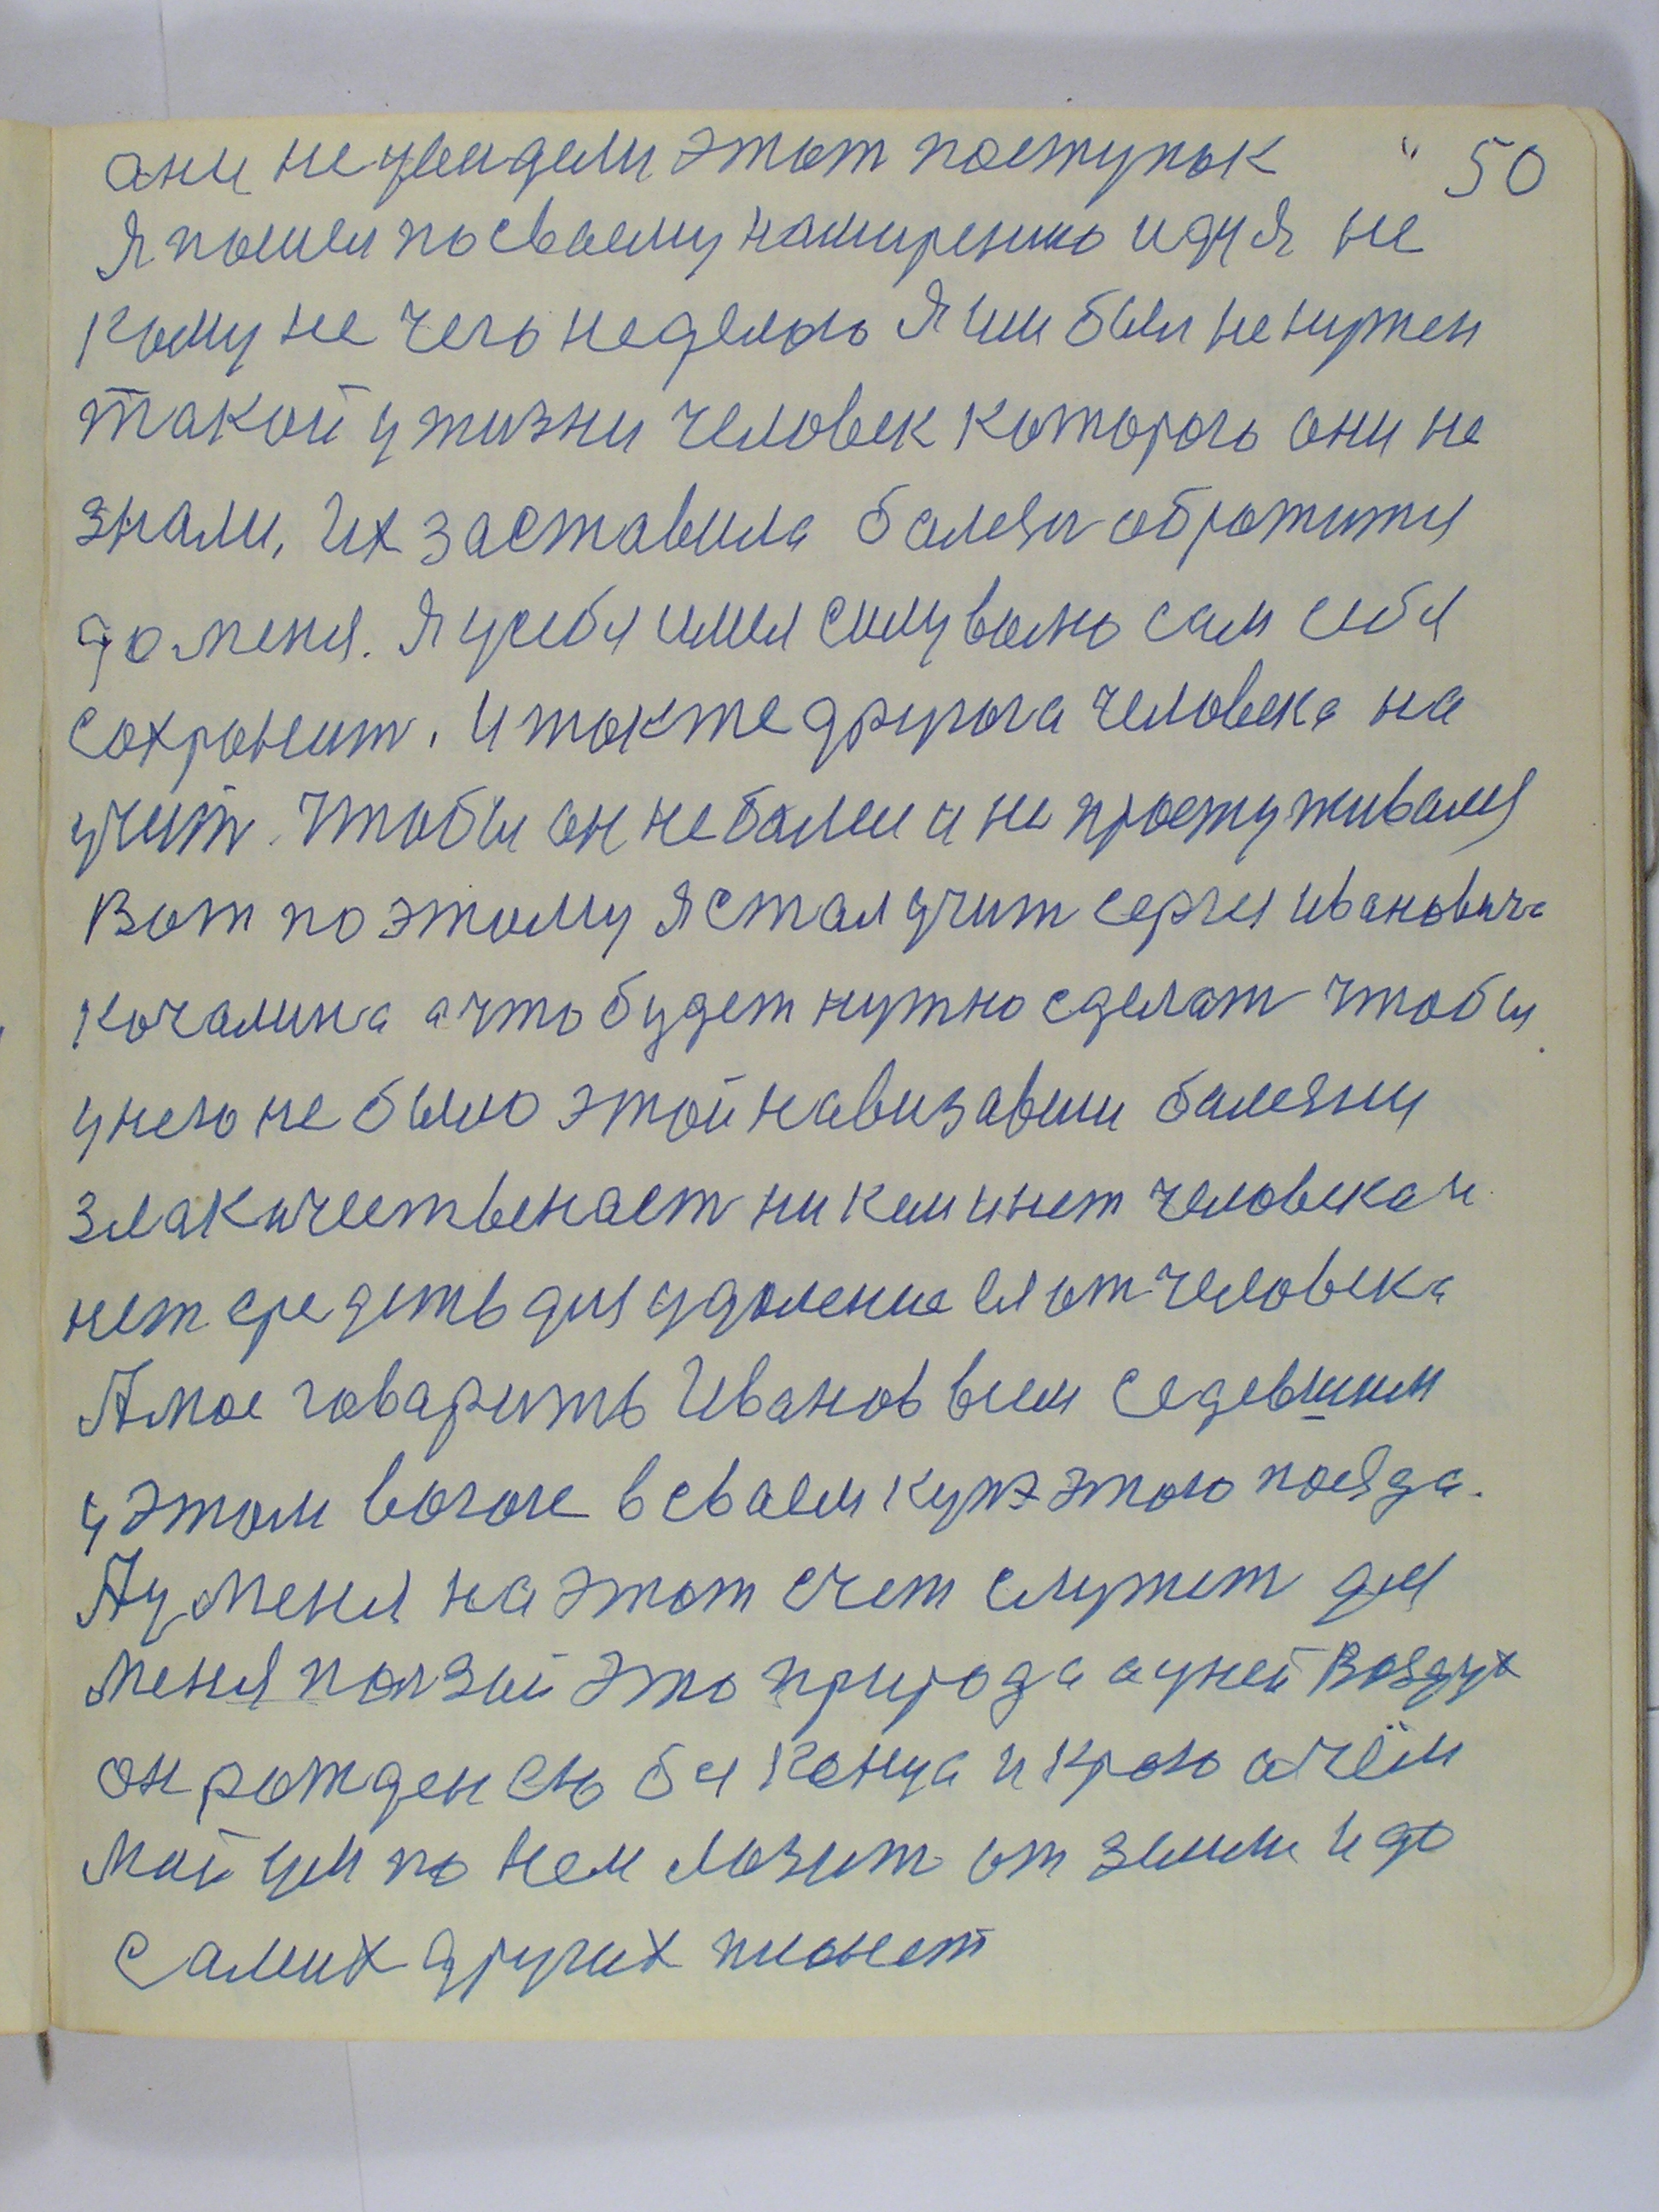 ани не увидели этот поступок " 50
Я пошел по своему намирению иду я не
кому не чего не делаю Я им был не нужен
такой у жизни человек которого они не
знали, Их заставила балезн обротится
до меня. Я у себя имел силу волю сам себя
сохронит, И также другога человека на
учит. Чтобы он не балел и не простуживался
Вот по этому я стал учит сергея ивановича
кочалина а что будет нужно сделат чтобы
у него не было этой балезни
злакичественаст ни кем и нет человека и
нет средств для удоление ея от человека
А мое говарить Иванов всем седевшим
у этом вогоне в своем купэ этого поезда.
А у меня на этот счет служит для
меня ползой это природа а у ней Воздух
он рожден ею бес конца и краю о чём
мой ум по нем лозит от земли и до
самих других плонет